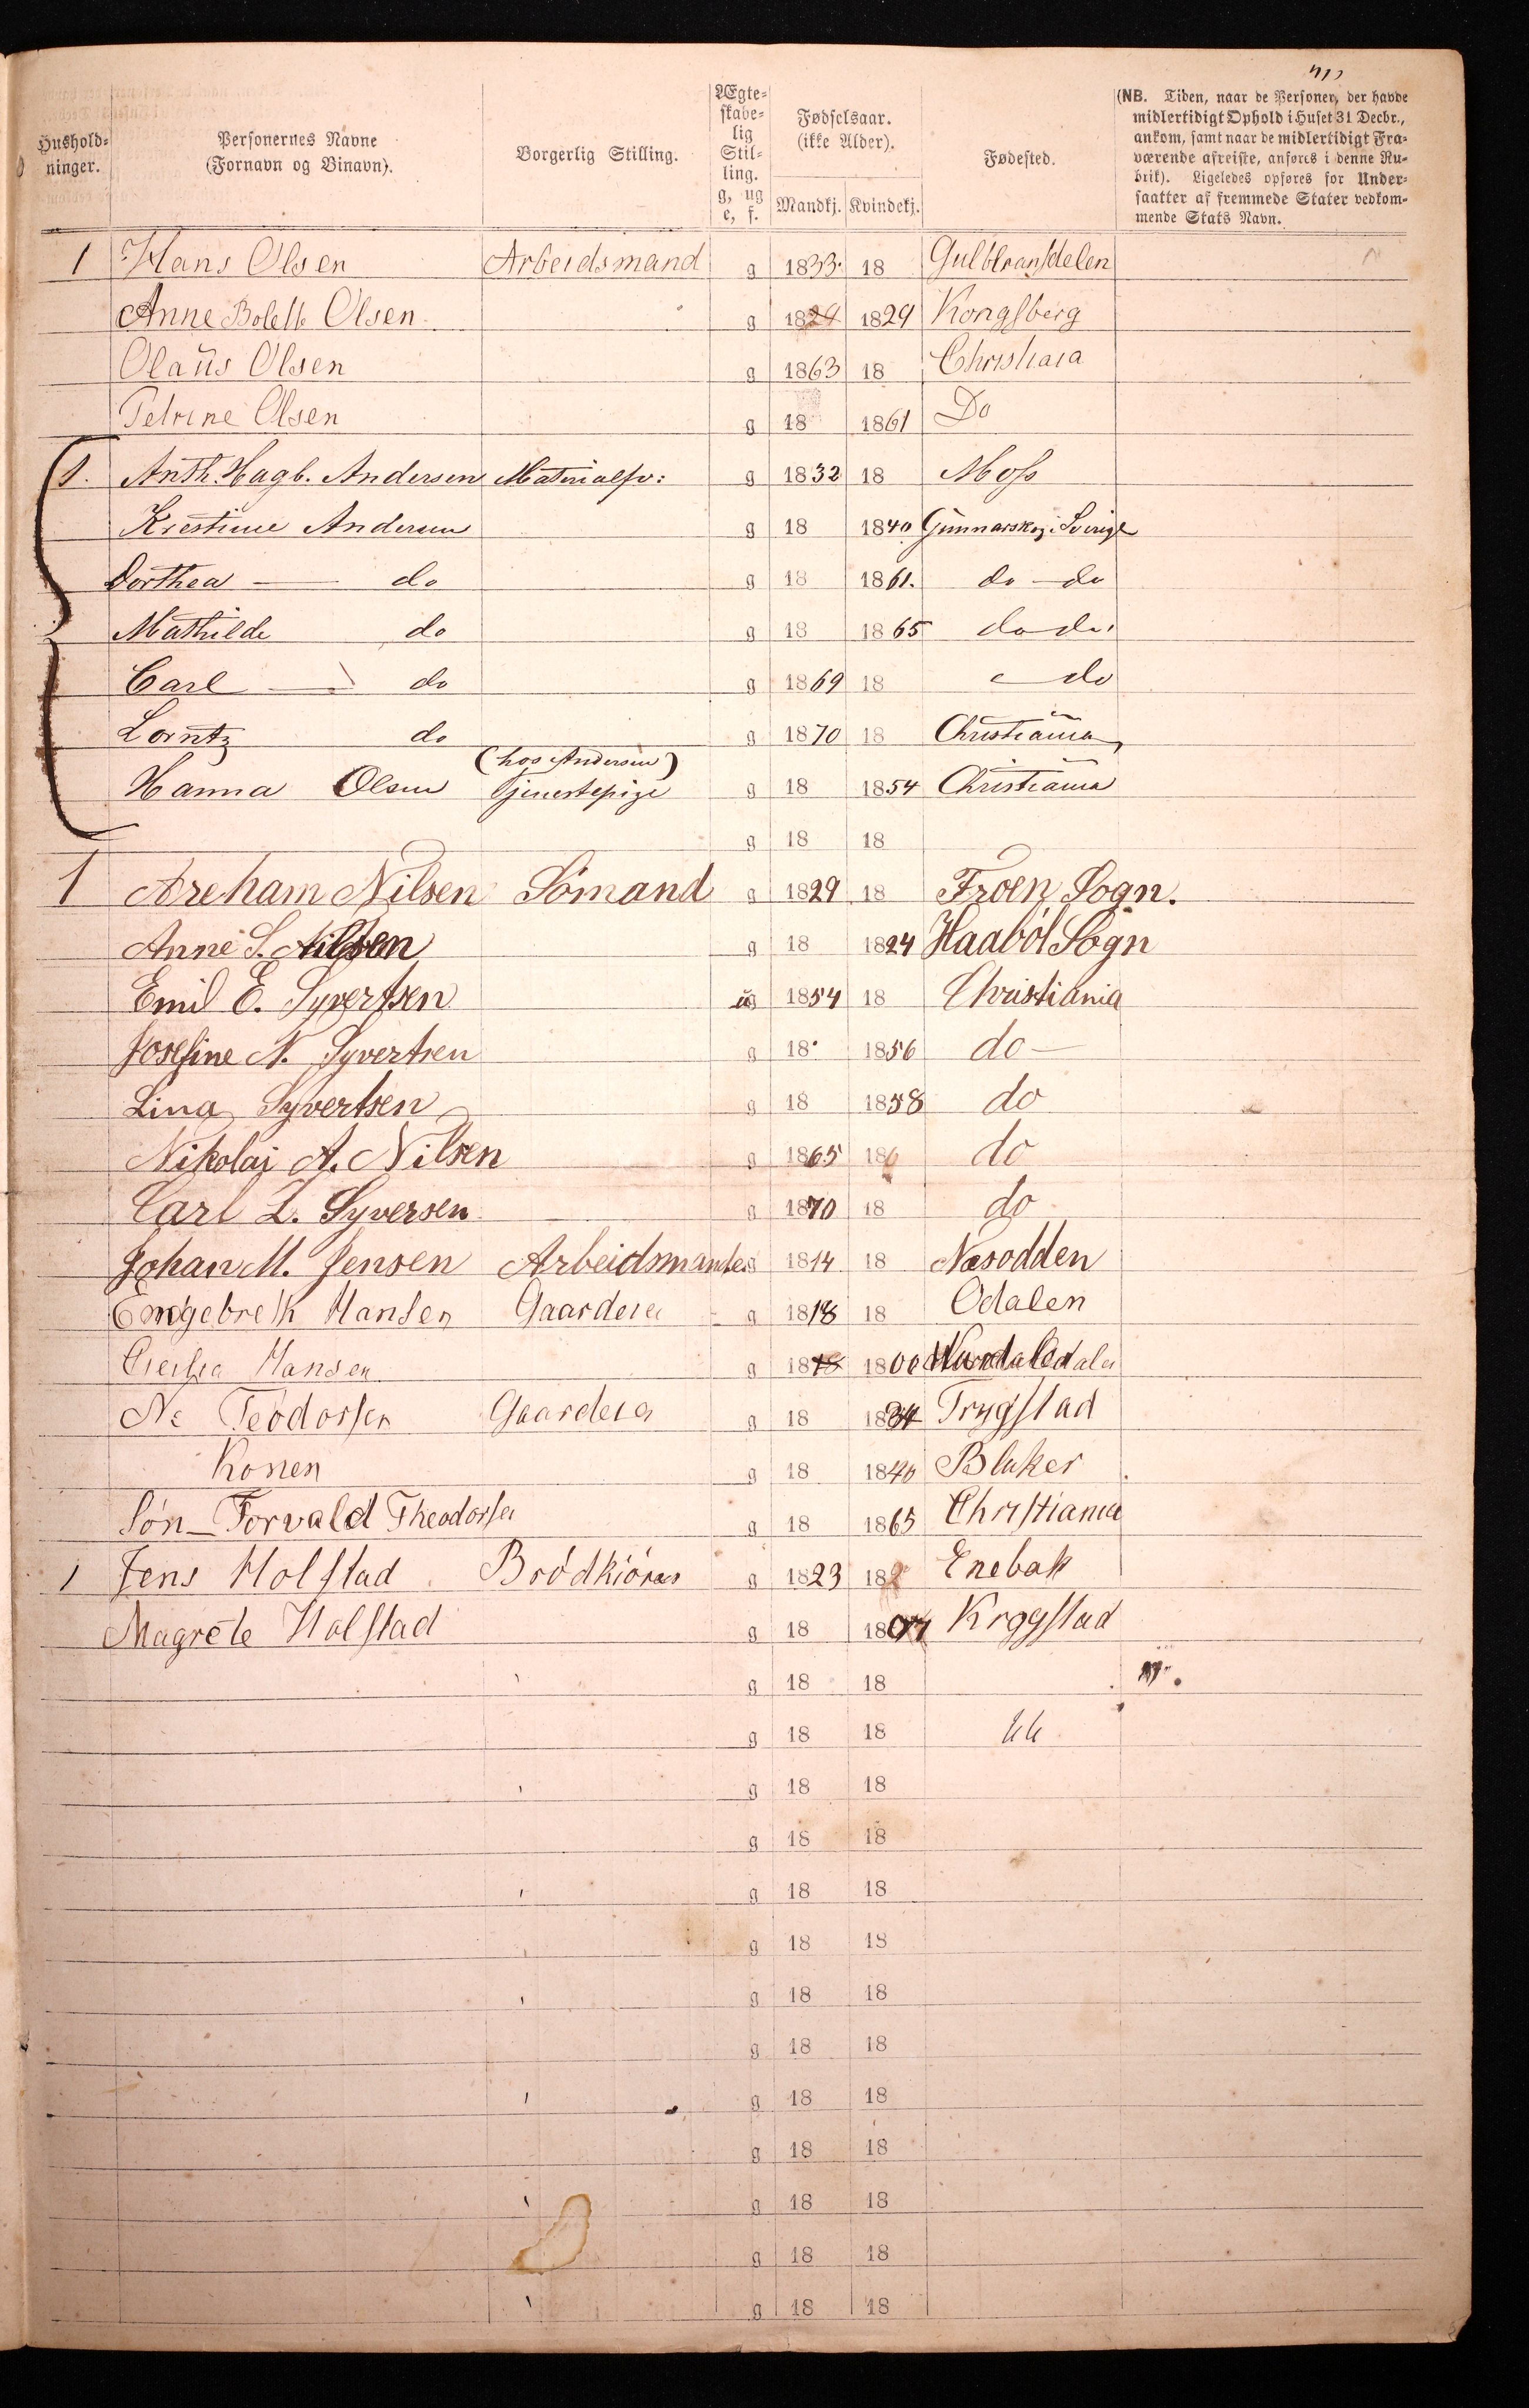 Hushold-ninger. Personernes Navne (Fornavn og Binavn). Borgerlig Stilling. Ægte-skabe-lig Stil-ling. g, ug e, f. Fødselsaar. (ikke Alder). Mandkj. Kvindekj. Fødested. (NB. Tiden, naar de Personer, der havde midlertidigt Ophold i Huset 31 Decbr., ankom, samt naar de midlertidigt Fra-værende afreiste, anføres i denne Ru-brik). Ligeledes opføres for Under-saatter af fremmede Stater vedkom-mende Stats Navn.
1 Hans Olsen Arbeidsmand g 1833 18 Gulbransdelen
Anne Bolette Olsen g 1829 1829 Kongsberg
Olaus Olsen g 1863 18 Christiaia
Petrine Olsen g 18 1861 Do
1. Anth. Hagb. Andersen Materialfv: g 1832 18 Moss
Krestine Andersen g 18 1840 Gunnarskog Sverige
Dorthea — do g 18 1861. do — do
Mathilde do g 18 1865 do do
Carl — do g 1869 18 — do
Lorntz do g 1870 18 Christiania
Hanna Olsen (hos Andersen) Tjenestepige g 18 1854 Christiania
g 18 18
1 Areham Nilsen Sömand g 1829 18 Froen Sogn.
Anne S. Nilsen g 18 1824 Haaböl Sogn
Emil E. Syvertsen ug 1854 18 Christiania
Josefine N. Syvertsen g 18 1856 do —
Lina Syvertsen g 18 1858 do
Nikolai A. Nilsen g 1865 186 do
Carl L. Syversen g 1870 18 do
Johan M. Jensen Arbeidsmand g 1814 18 Næsodden
Engebreth Hansen Gaardeier g 1818 18 Odalen
Hansen g 1818 180 Odalen
Ne Teodorsen Gaardeier g 18 1834 Trygstad
Konen g 18 1840 Blaker
Sön — Torvald Theodorsen g 18 1865 Christiania
1 Jens Holstad Brödkiörer g 1823 182 Enebak
Magrete Holstad g 18 18 Krogstad
g 18 18
g 18 18
g 18 18
g 18 18
g 18 18
g 18 18
g 18 18
g 18 18
g 18 18
g 18 18
g 18 18
g 18 18
g 18 18